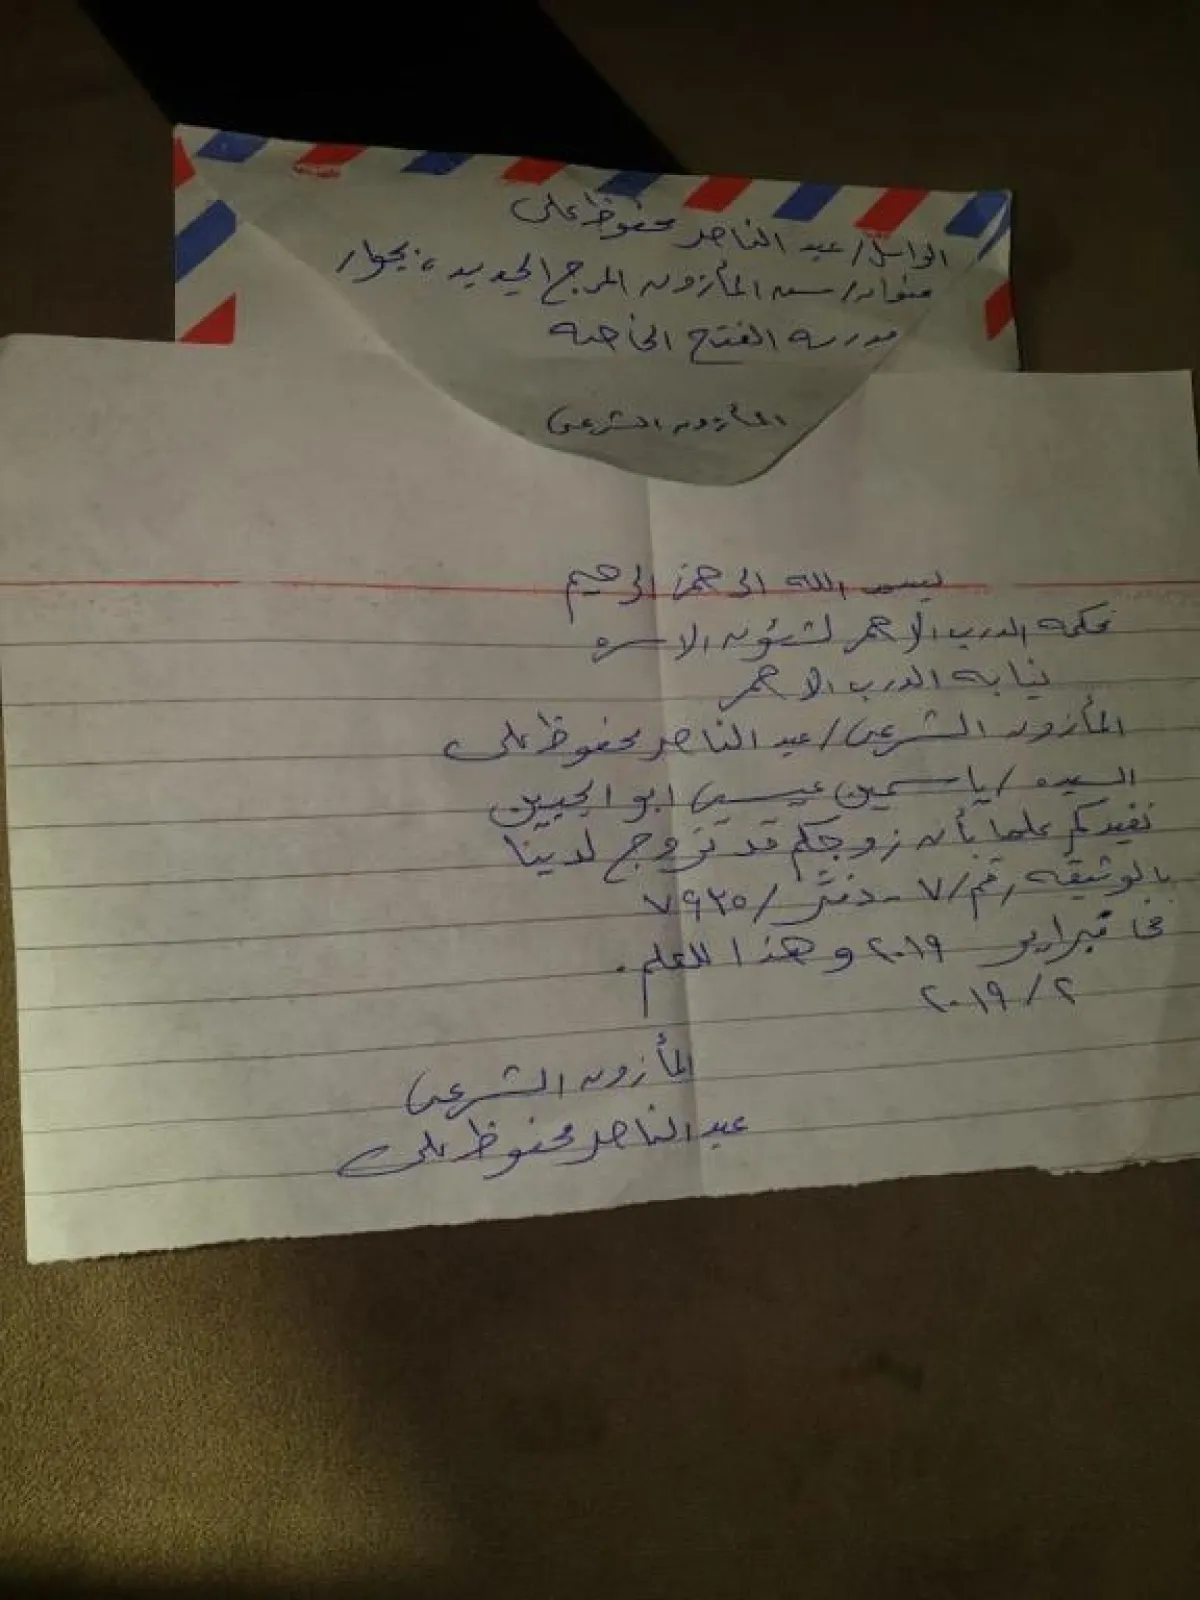 الراسل/ عبد الناصر محفوظ على
عنوانه/ سكنه المأذون المرج الجديده، بجوار
مدرسه الفتح الخاصه
المأذون الشرعى
بسم الله الرحمن الرحيم
محكمه الدرب الاحمر لشئون الاسره
نيابه الدرب الاحمر
المأذون الشرعى/ عبد الناصر محفوظ على
السيده / ياسمين عيسى ابو اليمين
نفيدكم علما بأن زوجكم قد تزوج لدينا
بالوثيقه رقم/ ٧ - دفتر/ ٧٩٢٥
فى فبراير ٢٠١٩ وهذا للعلم.
٢ / ٢٠١٩
المأذون الشرعى
عبد الناصر محفوظ على